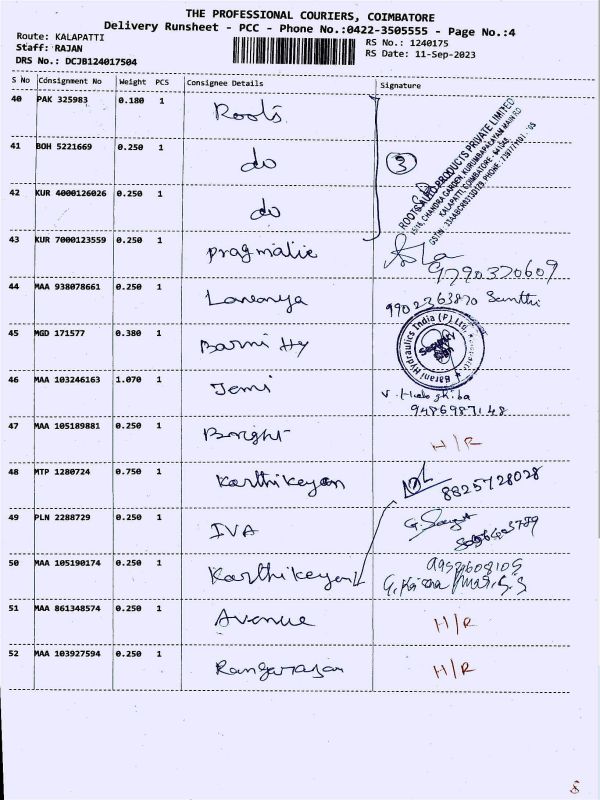 THE PROFESSIONAL COURIERS, COIMBATORE
Delivery Runsheet - PCC - Phone No.:0422-3505555 - Page No.:4
Route: KALAPATTI
RS No.: 1240175
Staff: RAJAN
RS Date: 11-Sep-2023
DRS No.: DCJB124017504
S No Consignment No Weight PCS Consignee Details Signature
40 PAK 325983 0.180 1 Roots
41 BOH 5221669 0.250 1 do
3
42 KUR 4000126026 0.250 1 do
ROOTS AUTO PRODUCTS PRIVATE LIMITED
KALAPATTI, COIMBATORE
43 KUR 7000123559 0.250 1 pragmatic
9790370609
44 MAA 938078661 0.250 1 Lavanya
9902363870 Santhi
45 MGD 171577 0.380 1 Barni Hy
Barani Hydraulics India (P) Ltd.
Security
46 MAA 103246163 1.070 1 Jemi
9486987148
47 MAA 105189881 0.250 1 Bright H/R
48 MTP 1280724 0.750 1 Karthikeyan
8825728028
49 PLN 2288729 0.250 1 IVA
50 MAA 105190174 0.250 1 Karthikeyan
51 MAA 861348574 0.250 1 Avenue H/R
52 MAA 103927594 0.250 1 Rangarajan H/R